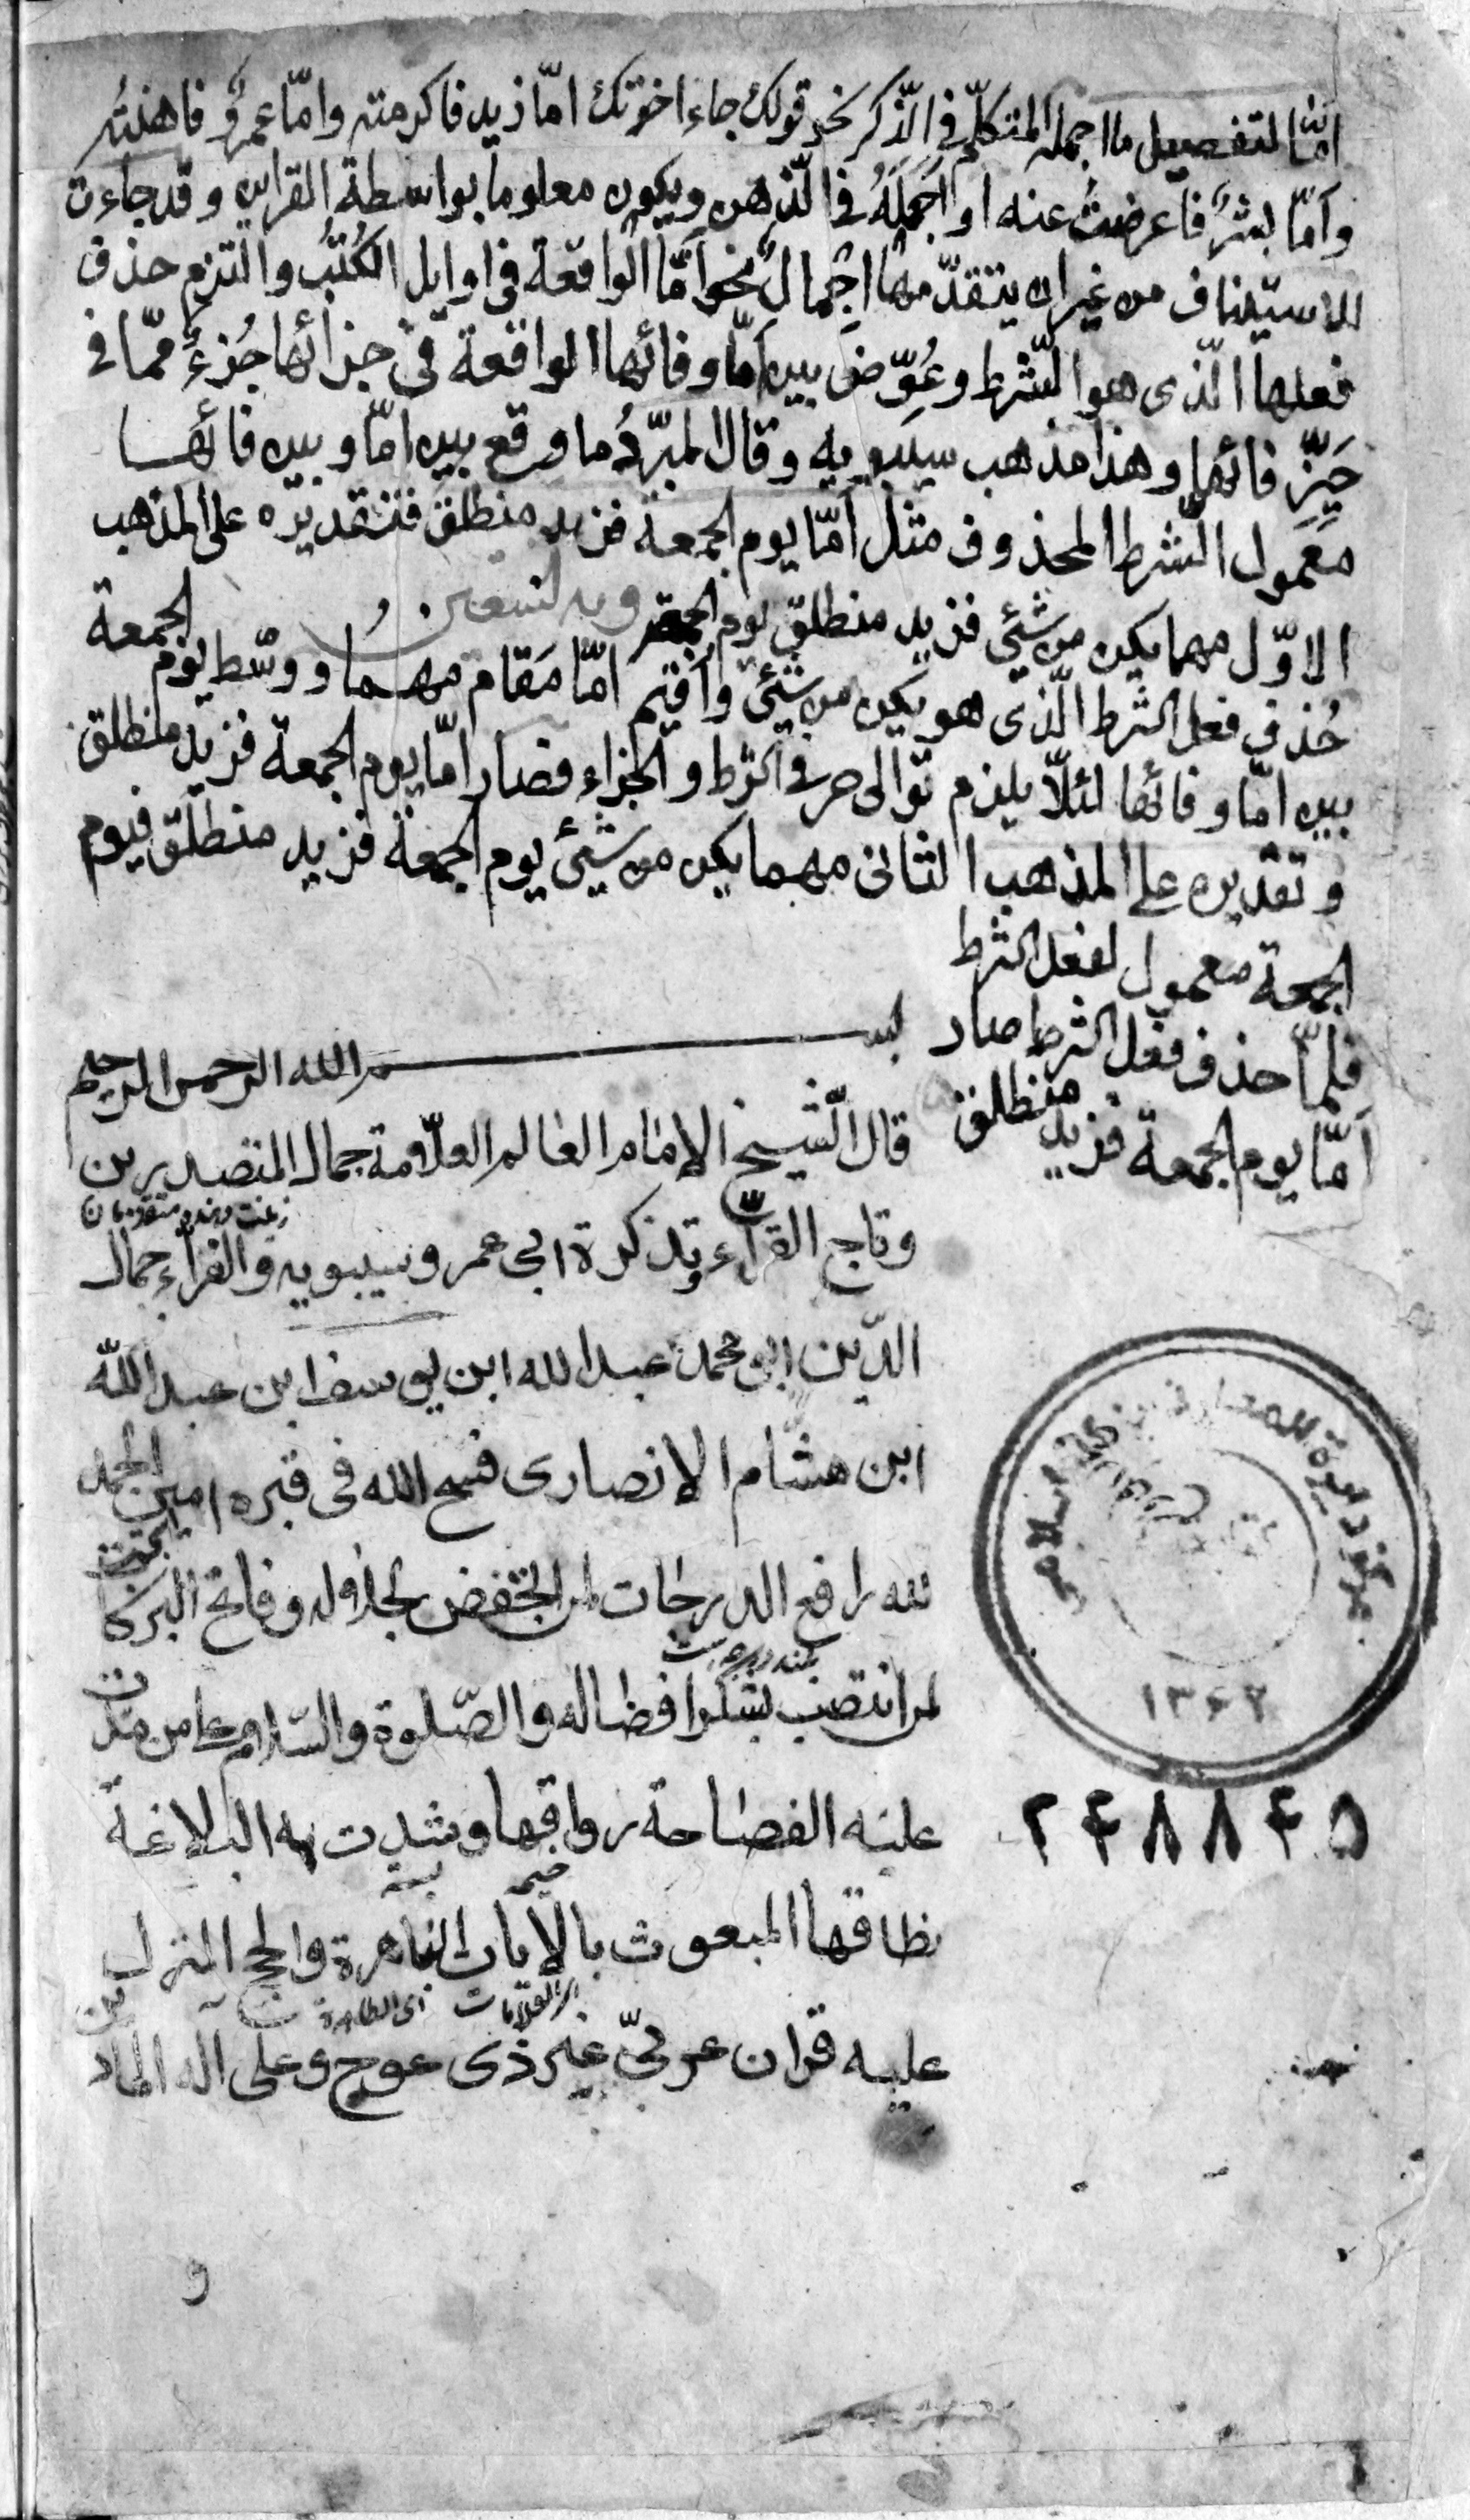 امّا لتفصيل ما اجمله المتكلّم في الذّكر نحو قولك جاء اخوتك امّا زيد فاكرمته وامّا عمرٌو فاهنتُه
وامّا بشرٌ فاعرضتُ عنه او اجملَهُ في الذّهن ويكون معلوما بواسطة القراين وقد جاءت
للاستيناف من غير ان يتقدّمها اجمالٌ نحو امّا الواقعة في اوايل الكُتُب والتزم حذف
فعلها الّذى هو الشّرط وعُوّض بين امّا وفائها الواقعة في جزائها جُزءٌ ممّا في
حَيِّز فائها وهذا مذهب سيبويه وقال المبرّدُ ما وقع بين امّا وبين فائها
معمول الشّرط المحذوف مثل امّا يوم الجمعة فزيد منطلق فتقديره على المذهب
الاوّل مهما يكن من شئ فزيد منطلق يوم الجمعة
حُذف فعل الشرط الّذى هو يكن من شئ واُقيم امّا مَقام مهما ووسّط يوم الجمعة
بين امّا وفائها لئلّا يلزم توالى حرفى الشرط والجزاء فصار امّا يوم الجمعة فزيد منطلق
وتقديره على المذهب الثانى مهما يكن من شئ يوم الجمعة فزيد منطلق فيوم
الجمعة معمول لفعل الشرط
فلمّا حذف فعل الشرط صار
امّا يوم الجمعة فزيد منطلق
بسم الله الرحمن الرحيم
قال الشّيخ الامام العالم العلّامة جمال المتصدرين
وتاج القرّاء وتذكرة ابى عمرو سيبويه والفرّاء جمال
الدّين ابى محمد عبد الله ابن يوسف ابن عبد اللّه
ابن هشام الانصارى فسح الله فى قبره امين الحمد
لله رافع الدرجات لمن انخفض لجلاله وفاتح البركات
لمن انتصب بشكر افضاله والصّلوة والسّلام على من مدّت
عليه الفصاحة رواقها وشدت به البلاغة
نطاقها المبعوث بالايات الباهرة والحجج المنزل
اى العلامات اى الظاهرة
عليه قران عربىّ غير ذى عوج وعلى آله الهادين
مركز دايرة المعارف بزرگ اسلامى
۱۳۶۲
۲۴۸۸۴۵